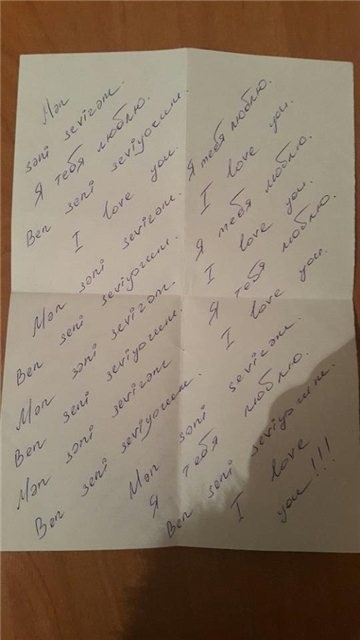 Mən
səni sevirəm.
Я тебя люблю.
Ben seni seviyorum.
I love you.
Mən səni sevirəm.
Ben seni seviyorum.
Mən səni sevirəm.
Ben seni seviyorum.
Mən səni sevirəm
Ben seni seviyorum.
Я тебя люблю.
I love you.
Я тебя люблю.
I love you.
Я тебя люблю.
I love you.
Mən səni sevirəm.
Я тебя люблю.
Ben seni seviyorum.
I love
you!!!